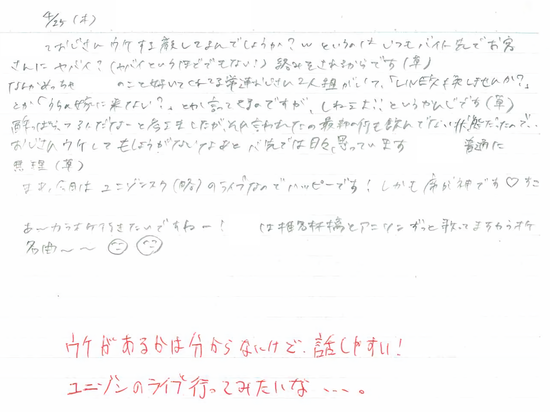 4/25 (木)
ておじさんウケする顔してるんでしょうか？w というのは いつもバイト先でお客
さんにヤバイ？(ヤバイというほどでもない！) 絡みをされるからです (草)
なんかめっちゃ のこと好いてくれてる常連おじさん2人組がいて、「LINE交換しませんか？」
とか「うちの嫁に来ない？」とか言ってくるのですが、しねよ!! というかんじです (草)
酔っぱらってるんだなーと思いましたが、それ言われたの最初の何も飲んでない状態だったので…
おじさんウケしてもしょうがないなあと 日々思っています 普通に
無理 (草)
まあ、今日は ユニゾンスク(略) のライブなのでハッピーです！しかも席が神です♡ すご
あ〜カラオケ行きたいですねー！ は椎名林檎とアニソンずっと歌ってますカラオケ
名曲〜〜
ウケがあるかは分からないけど、話しやすい！
ユニゾンのライブ行ってみたいな ・・・。